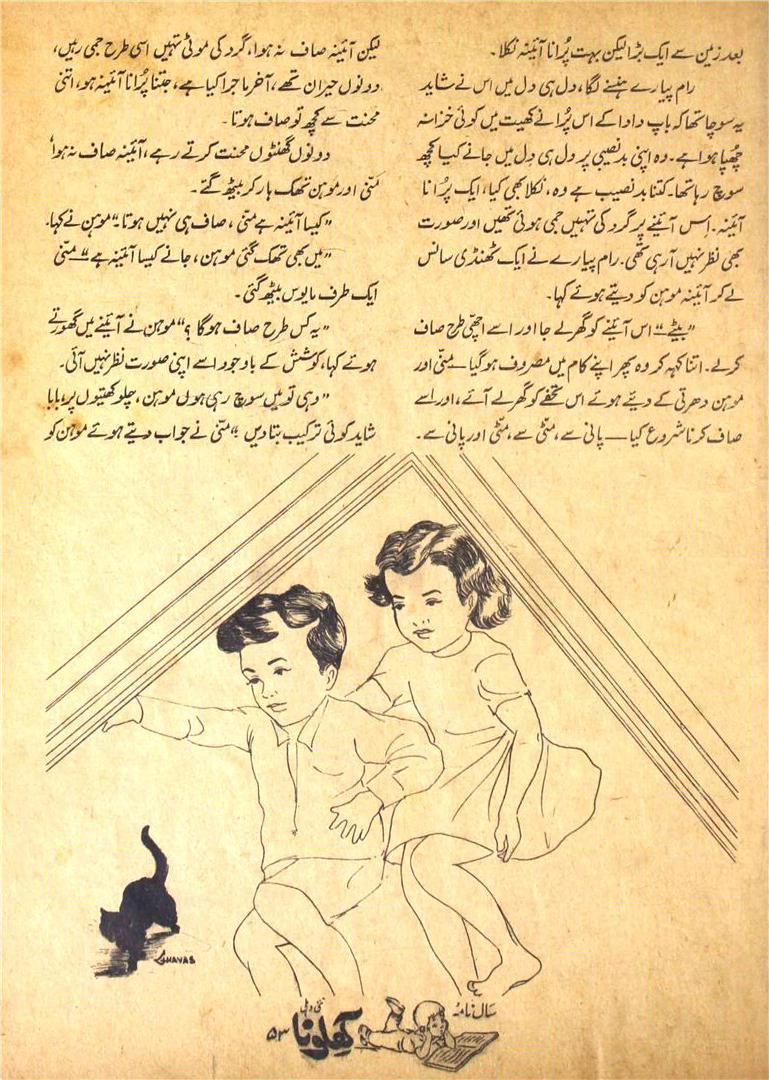 بعد زمین سے ایک بڑا لیکن بہت پُرانا آئینہ نکلا۔
رام پیارے ہنسنے لگا، دل ہی دل میں اس نے شاید
یہ سوچا تھا کہ باپ دادا کے اس پُرانے کھیت میں کوئی خزانہ
چُھپا ہوا ہے۔ وہ اپنی بدنصیبی پر دل ہی دل میں جانے کیا کچھ
سوچ رہا تھا۔ کتنا بدنصیب ہے وہ، نکلا بھی کیا، ایک پُرانا
آئینہ۔ اس آئینے پر گرد کی تہیں جمی ہوئی تھیں اور صورت
بھی نظر نہیں آ رہی تھی۔ رام پیارے نے ایک ٹھنڈی سانس
لے کر آئینہ موہن کو دیتے ہوئے کہا۔
”بیٹے“ اس آئینے کو گھر لے جا اور اسے اچھّی طرح صاف
کر لے۔ اتنا کہہ کر وہ پھر اپنے کام میں مصروف ہو گیا — منّی اور
موہن دھرتی کے دیئے ہوئے اس تحفے کو گھر لے آئے، اور اسے
صاف کرنا شروع کیا — پانی سے، منٹی سے، منٹی اور پانی سے۔
لیکن آئینہ صاف نہ ہوا، گرد کی موٹی تہیں اسی طرح جمی رہیں،
دونوں حیران تھے، آخر ماجرا کیا ہے، جتنا پُرانا آئینہ ہو، اتنی
محنت سے کچھ تو صاف ہوتا۔
دونوں گھنٹوں محنت کرتے رہے، آئینہ صاف نہ ہوا،
منّی اور موہن تھک ہار کر بیٹھ گئے۔
”کیسا آئینہ ہے منّی، صاف ہی نہیں ہوتا“ موہن نے کہا۔
”میں بھی تھک گئی موہن، جانے کیسا آئینہ ہے“ — منّی
ایک طرف مایوس بیٹھ گئی۔
”یہ کس طرح صاف ہوگا؟“ موہن نے آئینے میں گھورتے
ہوئے کہا، کوشش کے باوجود اسے اپنی صورت نظر نہیں آئی۔
”وہی تو میں سوچ رہی ہوں موہن، چلو کھیتوں پر، بابا
شاید کوئی ترکیب بتا دیں“ منّی نے جواب دیتے ہوئے موہن کو
GHAYAS
سال نامہ
کھلونا نئی دہلی ۵۳